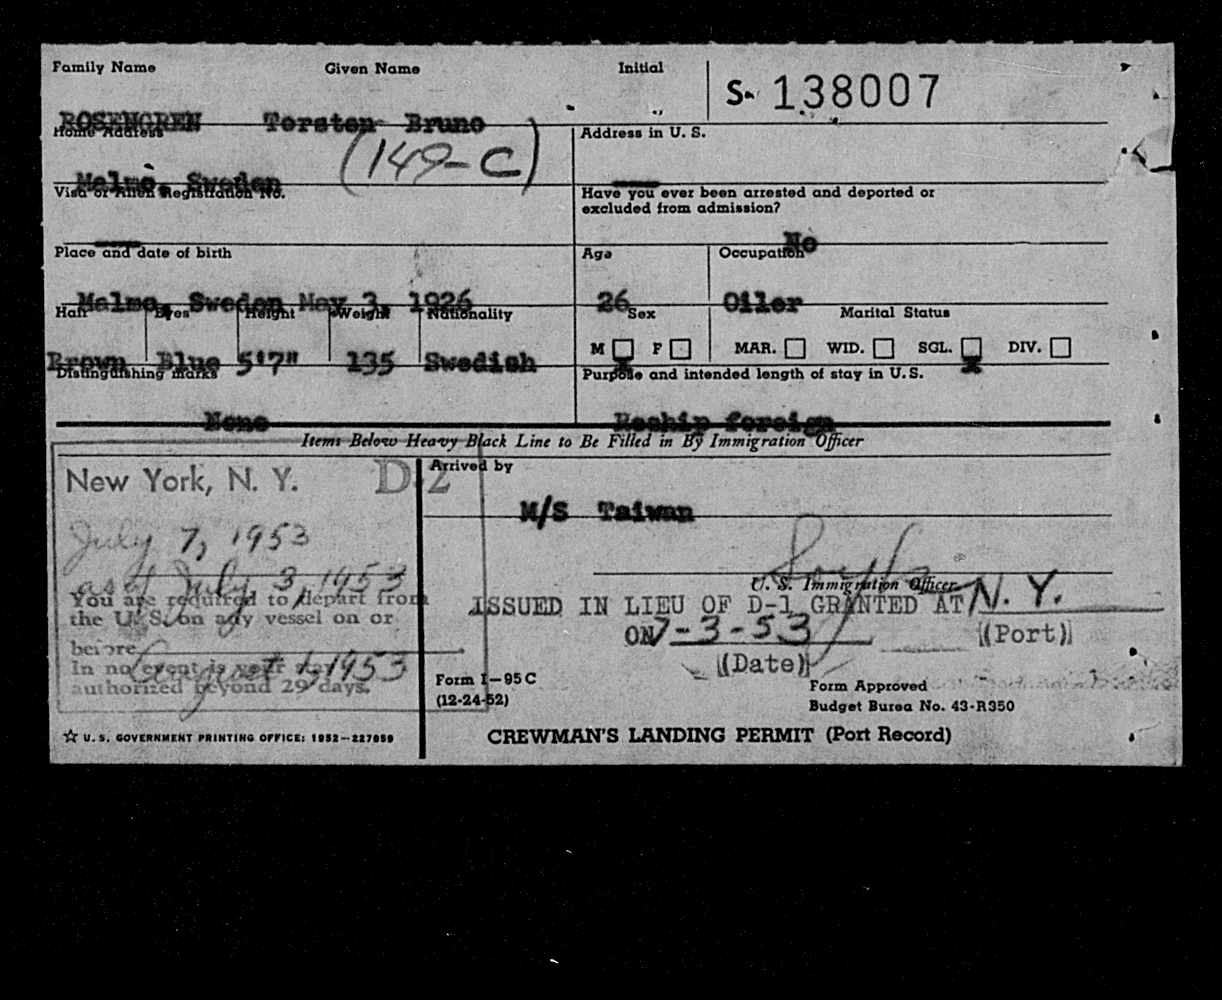 Family Name Given Name Initial
S- 138007
ROSENGREN Torsten Bruno
Home Address Address in U. S.
(149-C)
Malmo, Sweden
Visa or Alien Registration No. Have you ever been arrested and deported or
excluded from admission?
No
Place and date of birth Age Occupation
Malmo, Sweden May 3, 1926 26 Oiler
Hair Eyes Height Weight Nationality Sex Marital Status
M F MAR. WID. SGL. DIV.
Brown Blue 5'7" 135 Swedish X X
Distinguishing marks Purpose and intended length of stay in U.S.
None Reship foreign
Items Below Heavy Black Line to Be Filled in By Immigration Officer
New York, N. Y. D-2 Arrived by
M/S Taiwan
July 7, 1953
as of July 3, 1953
U. S. Immigration Officer
You are required to depart from
the U. S. on any vessel on or
before August 1, 1953
In no event is your stay
authorized beyond 29 days.
ISSUED IN LIEU OF D-1 GRANTED AT N. Y.
ON 7-3-53 (Port)
(Date)
Form I-95 C
(12-24-52)
Form Approved
Budget Burea No. 43-R350
☆ U. S. GOVERNMENT PRINTING OFFICE: 1952-227059
CREWMAN'S LANDING PERMIT (Port Record)